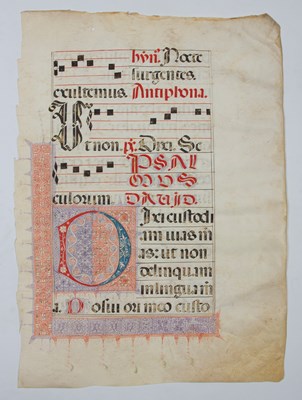 hỹn9 Nocte
surgentes
exultemus. Antiphona.
Ut non. ps. Dixi. Se
PSAL
MVS
culorum. DAVID.
Dixi custodi
am vias m̃
as: ut non
delinquam
in lingua m̃
a. Posui ori meo custo